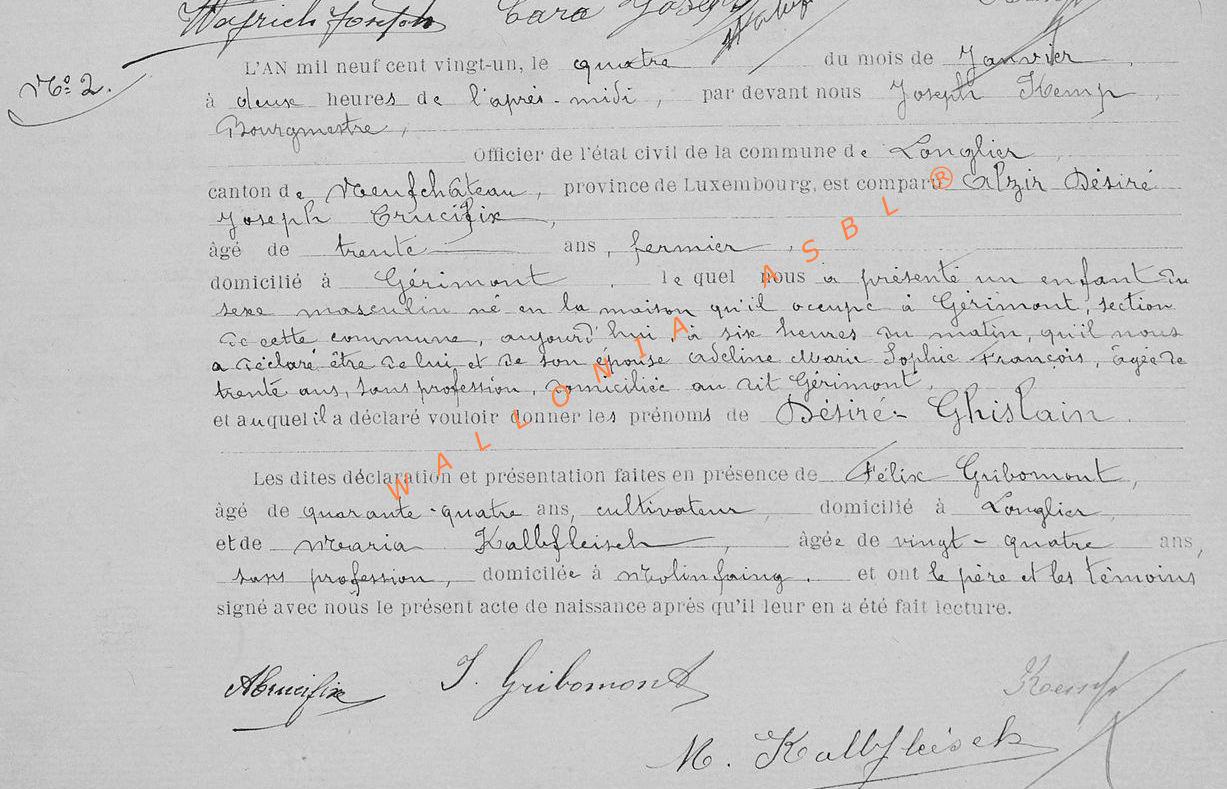 Wafrich Joseph Cara Joseph
N° 2.
L'AN mil neuf cent vingt-un, le quatre du mois de Janvier,
à deux heures de l'après-midi, par devant nous Joseph Kemp,
Bourgmestre,
Officier de l'état civil de la commune de Longlier,
canton de Neufchâteau, province de Luxembourg, est comparu Alzir Désiré
Joseph Crucifix,
âgé de trente ans, fermier,
domicilié à Gérimont, lequel nous a présenté un enfant du
sexe masculin né en la maison qu'il occupe à Gérimont, section
de cette commune, aujourd'hui, à six heures du matin, qu'il nous
a déclaré être de lui et de son épouse Adeline Marie Sophie François, âgée de
trente ans, sans profession, domiciliée au dit Gérimont,
et auquel il a déclaré vouloir donner les prénoms de Désiré-Ghislain.
Les dites déclaration et présentation faites en présence de Félix Gribomont,
âgé de quarante-quatre ans, cultivateur, domicilié à Longlier,
et de Maria Kalbfleisch, âgée de vingt-quatre ans,
sans profession, domicilée à Molinfaing, et ont le père et les témoins
signé avec nous le présent acte de naissance après qu'il leur en a été fait lecture.
ACrucifix F. Gribomont Kemp
M. Kalbfleisch
WALLONIA ASBL ®